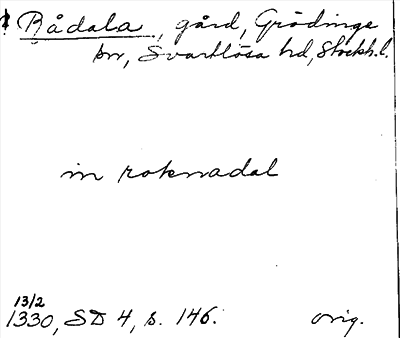 Rådala, gård, Grödinge
sn, Svartlösa hd, Stockh.l.
in roknadal
13/2
1330, SD 4, s. 146. orig.